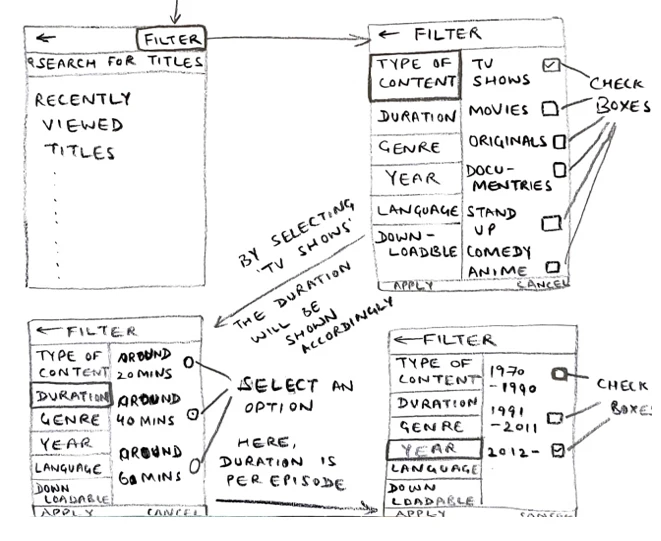 ← FILTER
SEARCH FOR TITLES
RECENTLY
VIEWED
TITLES
← FILTER
TYPE OF
CONTENT
DURATION
GENRE
YEAR
LANGUAGE
DOWN-
LOADIBLE
TV
SHOWS
MOVIES
ORIGINALS
DOCU-
MENTRIES
STAND
UP
COMEDY
ANIME
APPLY CANCEL
CHECK
BOXES
BY SELECTING
'TV SHOWS'
THE DURATION
WILL BE
SHOWN
ACCORDINGLY
← FILTER
TYPE OF
CONTENT
DURATION
GENRE
YEAR
LANGUAGE
DOWN
LOADABLE
AROUND
20 MINS
AROUND
40 MINS
AROUND
60 MINS
APPLY CANCEL
SELECT AN
OPTION
HERE,
DURATION IS
PER EPISODE
← FILTER
TYPE OF
CONTENT
DURATION
GENRE
YEAR
LANGUAGE
DOWN
LOADABLE
1970
-1990
1991
-2011
2012-
APPLY CANCEL
CHECK
BOXES